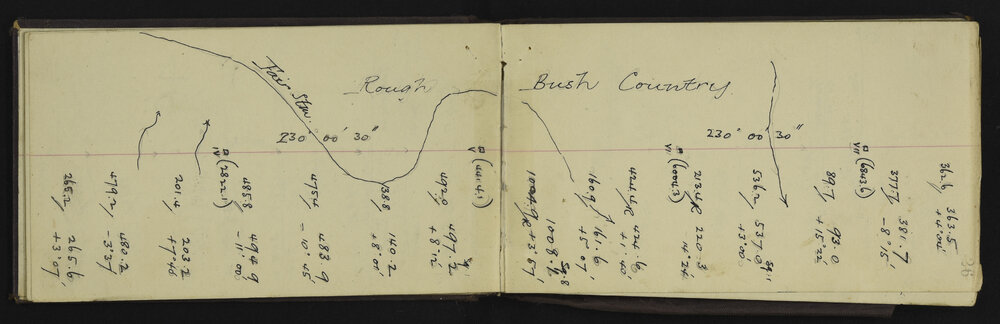 Rough Bush Country
Fair Stm.
230° 00' 30"
230° 00' 30"
□ IV (2822.1)
□ V (4414.1)
□ VI (6004.3)
□ VII (6843.6)
265.2 265.6 +3°07'
479.2 480.2 -3°37'
201.4 203.2 +7°48'
485.8 494.9 -11°00'
475.4 483.9 -10°45'
138.8 140.2 +8°01'
492.0 497.2
1004.9 1008.9 +3°57'
160.9 161.6 +5°07'
424.4 424.6
213.4 220.3
536.2 537.0 +3°00'
89.7 93.0 +15°22'
377.7 381.7 -8°15'
362.6 363.5 +4°04'
36